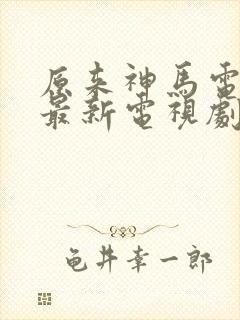 原来神馬電
最新電視劇
龟井幸一郎